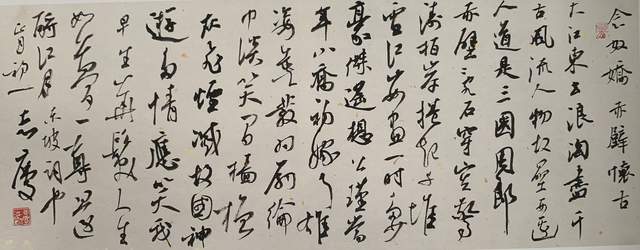 念奴嬌 赤壁懷古
大江東去浪淘盡千
古風流人物故壘西邊
人道是三國周郎
赤壁亂石穿空驚
濤拍岸捲起千堆
雪江山如畫一時多少
豪傑遙想公瑾當
年小喬初嫁了雄
姿英發羽扇綸
巾談笑間檣櫓
灰飛煙滅故國神
遊多情應笑我
早生華髮人生
如夢一尊還
酹江月 東坡詞也
正月初一 志慶